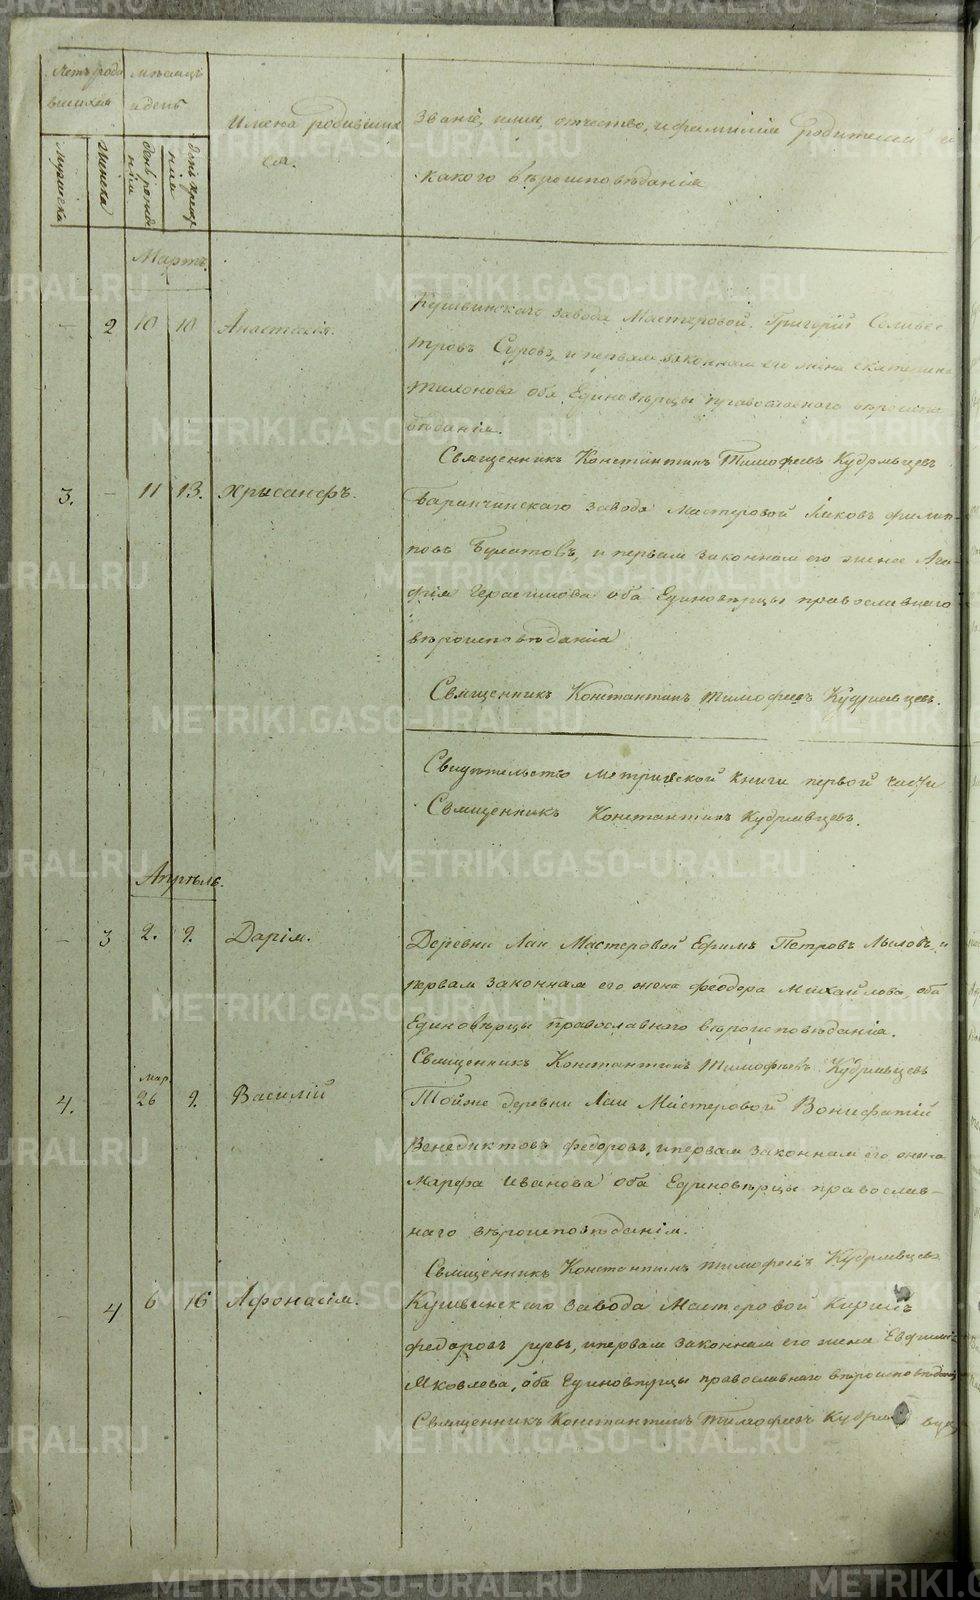 Счетъ роди мѣсяцъ
вшихся и день
Имена родивших
ся.
Званіе, имя, отчество, и фамилія родителей и
какого вѣроисповѣданія
мужеска
женска
день рожде
нія
день крещ
енія
Мартъ.
- 2 10 10 Анастасія.
Кушвинскаго завода Мастеровой Григорій Селивес
тровъ Суровъ, и первая законная его жена Екатерина
Тихонова оба Единовѣрцы православнаго вѣроиспо
вѣданія.
Священникъ Константинъ Тимофеевъ Кудрявцевъ
3. - 11 13. Хрисанфъ.
Баранчинскаго завода мастеровой Яковъ Филип-
повъ Булатовъ, и первая законная его жена Ага-
фія Герасимова оба Единовѣрцы православнаго
вѣроисповѣданія
Священникъ Константинъ Тимофеевъ Кудрявцевъ.
Свидѣтельство метрической книги первой части
Священникъ Константинъ Кудрявцевъ.
Апрѣль.
- 3 2. 9. Дарія.
Деревни Лаи Мастеровой Ефимъ Петровъ и
первая законная его жена Феодора Михайлова, оба
Единовѣрцы православнаго вѣроисповѣданія.
Священникъ Константинъ Тимофеевъ Кудрявцевъ
мар
4. - 26 9. Василій
Тойже деревни Лаи Мастеровой Вонифатій
Венедиктовъ Федоровъ, и первая законная его жена
Марфа Иванова оба Единовѣрцы православ-
наго вѣроисповѣданія.
Священникъ Константинъ Тимофеевъ Кудрявцевъ
- 4 6 16 Афонасія.
Кушвинскаго завода Мастеровой Кирилъ
Федоровъ и первая законная его жена Евфимія
Яковлева, оба Единовѣрцы православнаго вѣроисповѣданія
Священникъ Константинъ Тимофеевъ Кудрявцевъ